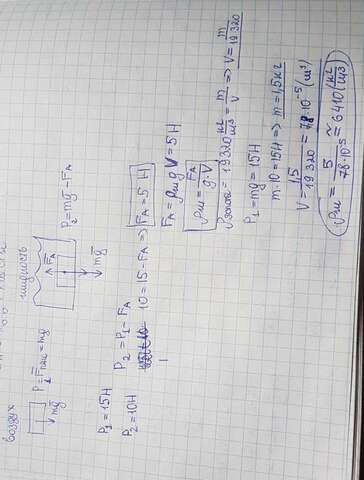 воздух
жидкость
P₁ = Fтяж = mg
P₂ = mg - F_A
mg
F_A
mg
P₁ = 15 H
P₂ = 10 H
P₂ = P₁ - F_A
10 = 15 - F_A => F_A = 5 H
F_A = ρж g V = 5 H
ρж = F_A / g·V
ρзолота = 19320 кг/м³ = m/V => V = m/19 320
P₁ = mg = 15 H
m·10 = 15 H => m = 1,5 кг
V = 1,5 / 19 320 = 7,8·10⁻⁵ (м³)
ρж = 5 / 78·10⁻⁵ ≈ 6410 (кг/м³)